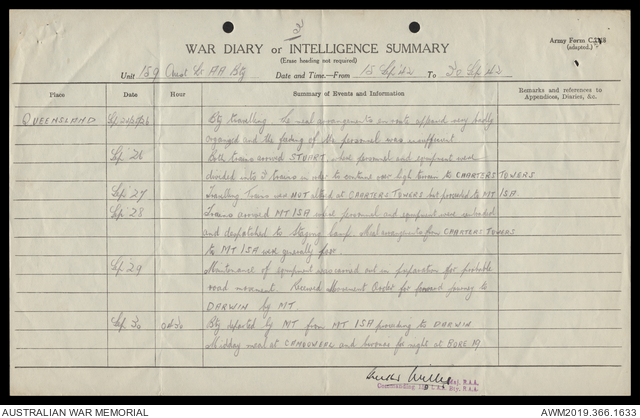 2
WAR DIARY or INTELLIGENCE SUMMARY
(Erase heading not required)
Army Form C.2118
(adapted.)
Unit 159 Aust Lt AA Bty Date and Time—From 15 Sep 42 To 30 Sep 42
Place Date Hour Summary of Events and Information Remarks and references to Appendices, Diaries, &c.
QUEENSLAND Sep 24/25/26 Bty travelling. The meal arrangements en route appeared very badly
organized and the feeding of the personnel was insufficient
Sep 26 Both trains arrived STUART, where personnel and equipment were
divided into 3 trains in order to continue over light line to CHARTERS TOWERS
Sep 27 Travelling Trains was NOT altered at CHARTERS TOWERS but proceeded to MT ISA.
Sep 28 Trains arrived MT ISA where personnel and equipment were unloaded
and despatched to Staging Camp. Meal arrangements from CHARTERS TOWERS
to MT ISA were generally poor.
Sep 29 Maintenance of equipment was carried out in preparation for probable
road movement. Received Movement Order for forward journey to
DARWIN by MT.
Sep 30 Bty departed by MT from MT ISA proceeding to DARWIN
Midday meal at CAMOOWEAL and bivouac for night at BORE 19
Maj. R.A.A.
Commanding Bty. R.A.A.
AUSTRALIAN WAR MEMORIAL
AWM2019.366.1633